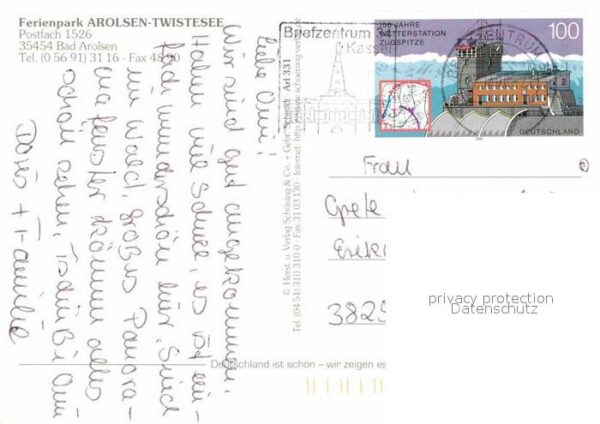 Ferienpark AROLSEN-TWISTESEE
Postfach 1526
35454 Bad Arolsen
Tel. (0 56 91) 31 16 · Fax 48 20
Liebe Omi!
Wir sind gut angekommen,
Haben viel Schnee, es ist ein-
fach wunderschön hier, Sind
im Wald, großes Panora-
mafenster können alles
schön sehen, Tschüß Omi
Doris + Familie
© Herst. u. Verlag Schöning & Co. + Gebr. Schmidt Arl 331
Tel (04 51) 310 310 0 · Fax 31 03 130
Briefzentrum
Kassel
100 JAHRE
WETTERSTATION
ZUGSPITZE
100
DEUTSCHLAND
Frau
Grete
Erika
3825
privacy protection
Datenschutz
Deutschland ist schön – wir zeigen es